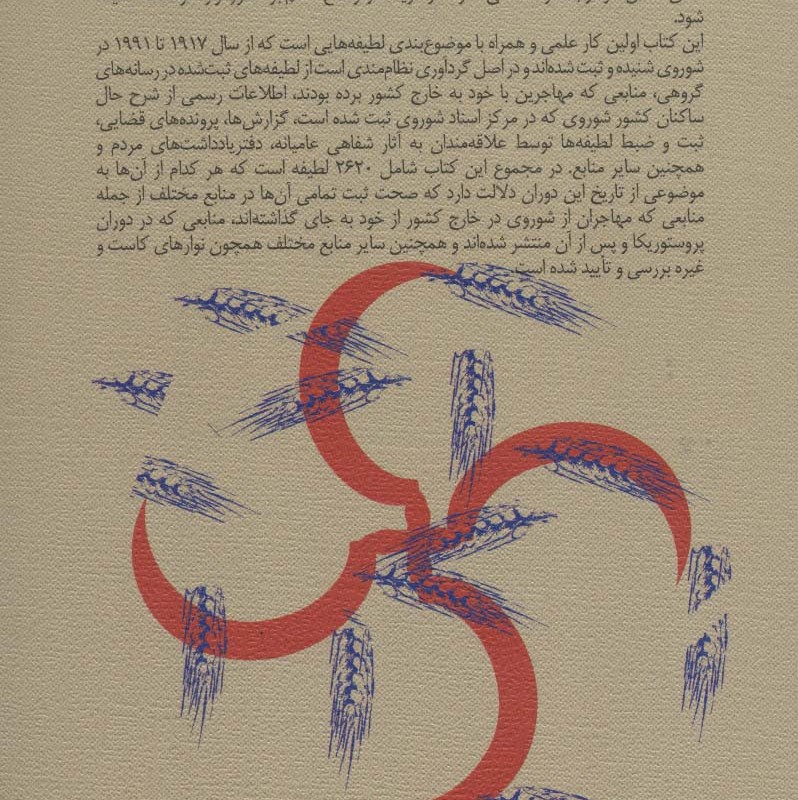 شود.
این کتاب اولین کار علمی و همراه با موضوع‌بندی لطیفه‌هایی است که از سال ۱۹۱۷ تا ۱۹۹۱ در
شوروی شنیده و ثبت شده‌اند و در اصل گردآوری نظام‌مندی است از لطیفه‌های ثبت‌شده در رسانه‌های
گروهی، منابعی که مهاجرین با خود به خارج کشور برده بودند، اطلاعات رسمی از شرح حال
ساکنان کشور شوروی که در مرکز اسناد شوروی ثبت شده است، گزارش‌ها، پرونده‌های قضایی،
ثبت و ضبط لطیفه‌ها توسط علاقه‌مندان به آثار شفاهی عامیانه، دفتریادداشت‌های مردم و
همچنین سایر منابع. در مجموع این کتاب شامل ۲۶۲۰ لطیفه است که هر کدام از آن‌ها به
موضوعی از تاریخ این دوران دلالت دارد که صحت ثبت تمامی آن‌ها در منابع مختلف از جمله
منابعی که مهاجران از شوروی در خارج کشور از خود به جای گذاشته‌اند، منابعی که در دوران
پروستوریکا و پس از آن منتشر شده‌اند و همچنین سایر منابع مختلف همچون نوارهای کاست و
غیره بررسی و تأیید شده است.